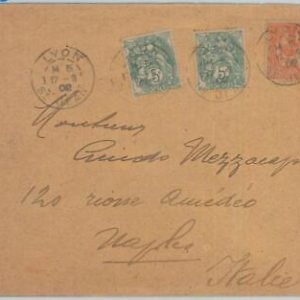 LYON
02
5
5
Monsieur
Guido Mezzacapo
120 rione Amédéo
Naples
Italie